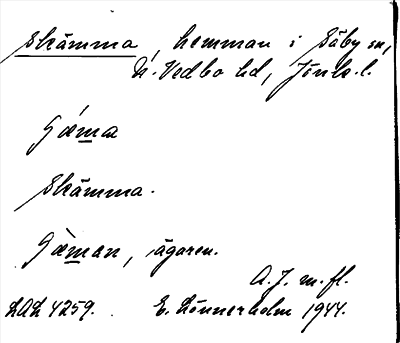 Skämma, hemman i Säby sn,
N. Vedbo hd, Jönk. l.
Skämma.
ägaren.
A. J. m. fl.
LAL 4259. E. Lönnerholm 1944.